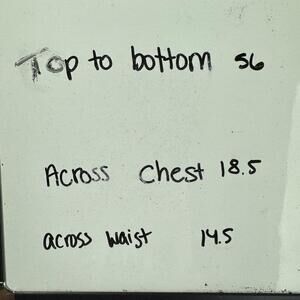 Top to bottom 56
Across Chest 18.5
across waist 14.5